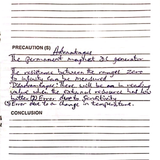 PRECAUTION (S)
Advantages
The permanent magnet DC generator
The resistance between the ranges zero
to infinity can be measured
Disadvantages: There will be no reading
value when the external resistance not
Error due to
Error due to change in temperature.
CONCLUSION